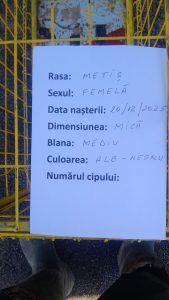 Rasa: METIȘ
Sexul: FEMELĂ
Data nașterii: 20/12/2025
Dimensiunea: MICĂ
Blana: MEDIU
Culoarea: ALB - NEGRU
Numărul cipului: